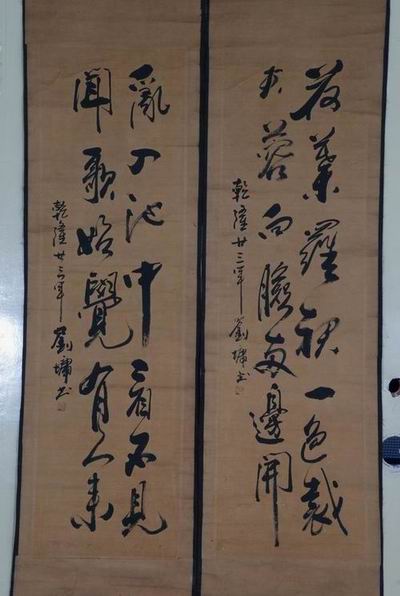 荷葉羅裙一色裁
芙蓉向臉兩邊開
乾隆廿三年 劉墉書
亂入池中看不見
聞歌始覺有人来
乾隆廿三年 劉墉書